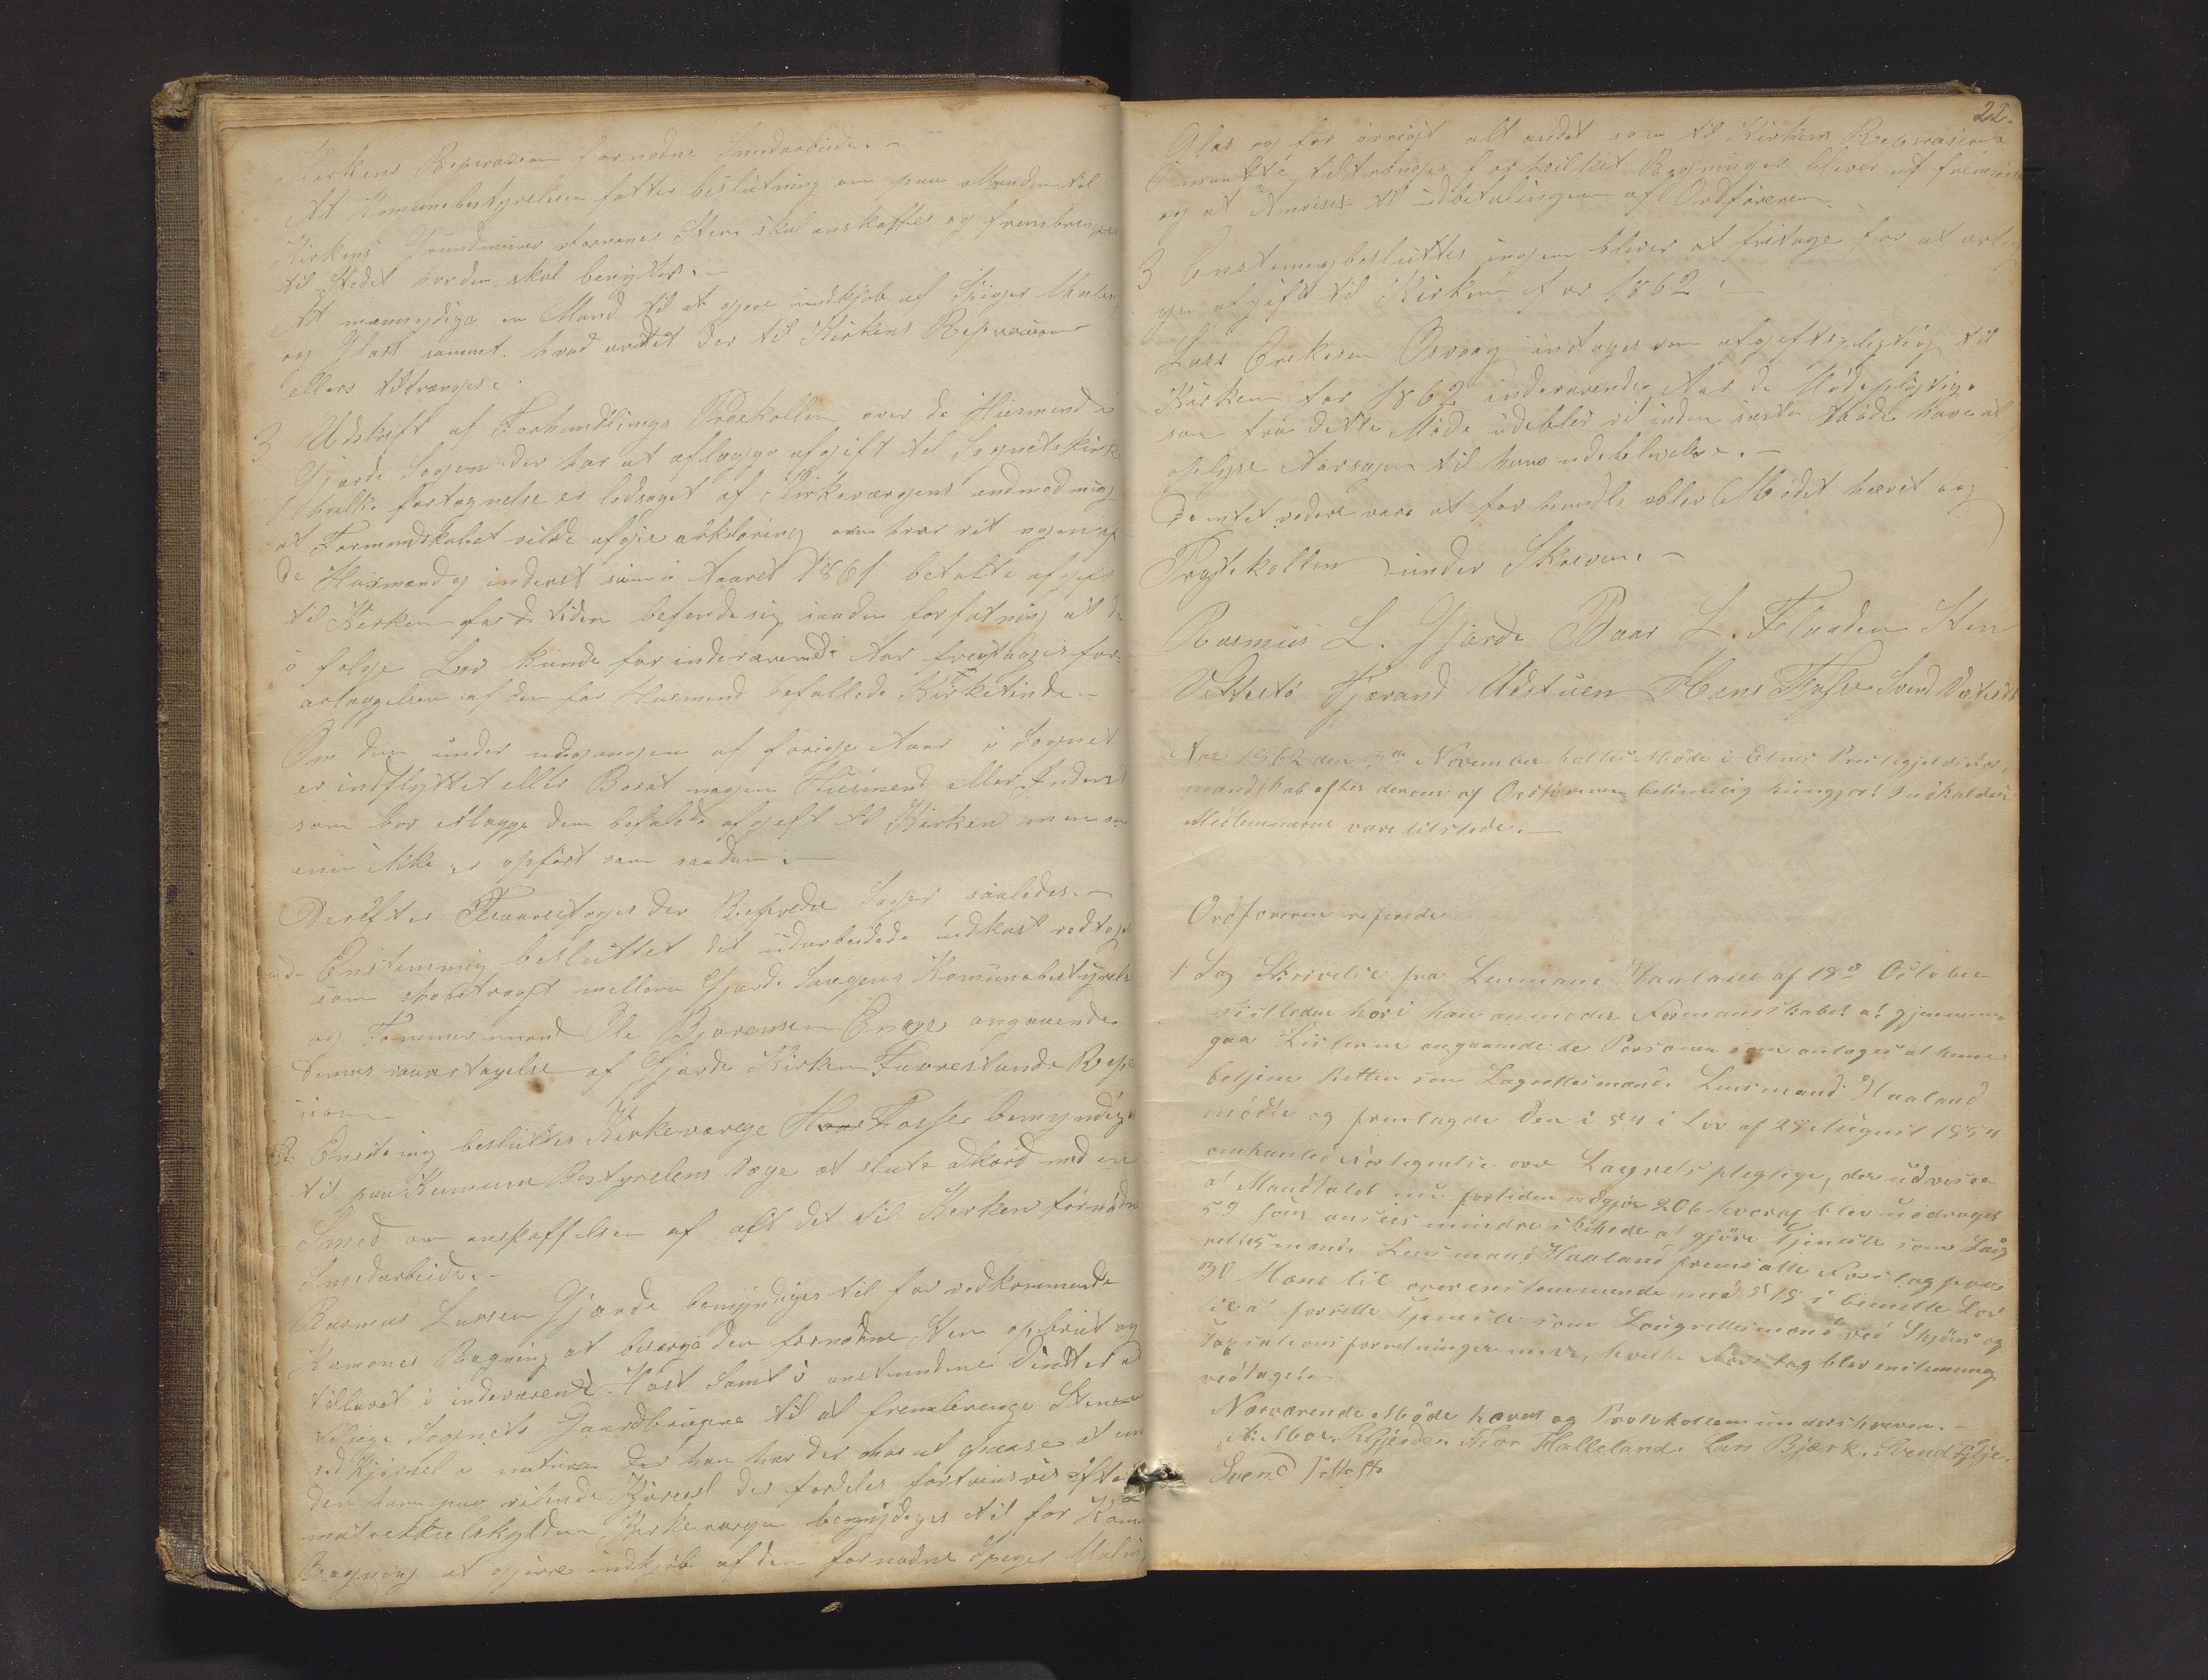 Kirkens Reperasion fornødne Smedarbeide.-
At Komunebestyrelsen fatter beslutning om paa Maaden til
Kirkens Grundmurer fornøne Sten skal anskaffes og frembringes
til Stedet hvor den skal benyttes.-
At mynndige en Mand til at gjøre indkjøb af Spiger Maling
og Glas sammt hvad andet der til Kirkens Reperasion
ellers tiltrænges.
3 Udskrift af Forhandlings Protokollen over de Husmend i
Gjærde Sogen der har at aflægge afgift til Sognetskirke
hvilke fortegnelse er ledsaget af Kirkeværgens andmodning
at Formandskabet vilde afgie ærklæring om hvor vit nogen af
de Husmænd og inderst som i Aaret 1861 betalte afgift
til Kirken for tiden befinde sig i saadan forfatning at de
i følge Lov kunde for indeværende Aar fritages for
ærlæggelsen af den for Husmend befallede Kirketiende.-
Om den under udgangen af forige Aar i Sognet
er indflyttet eller Bosat nogen Husmend eller Inderst
som bør ærlægge den befalede afgift til Kirken men som
enu ikke er opført som saadan.-
Derefter Fluoretoges der Refrede Sager saaledes.-
Enstemmig besluttet det udarbeidede udkast vedtages
som kontragt mellem Gjærde Sognens Komunebestyrelse
og Tømmermand Ole Bjørensen Enge angaaende
dennes paatagelse af Gjærde Kirkes Fuorestaaende Repe
sion
Enstemig besluttes Kirkeværge Fosse bemyndiges
til paa Kumune Bestyrelens Vegne at slute Akord med en
Smed om anskaffelsen af alt det til Kirken fornødne
Smedarbeide.-
Rasmus Larsen Gjærde bemyndiges til for vedkommende
Komunes Regning at besørge den fornødne Sten opbrut og
tillavet i indeværende Høst samt i anstundene Vindter at
tilsige Sognets Gaardbrugere til at frembringe Stenen
ved Kjørsel in natura der han har der har at passe at en
den kom paa vilende Kjørsel der fordeles fortrinsvis efter
matrikkelskylden Kirkevargen bemyndiges til for Kom
Regning at gjøre indkjøb af den fornødne Speger Maling
22.
Glas og for øvrigt alt andet som til Kirkens Reperasion
maatte tiltrænges for hvilket Regninger bliver at fremme
og at Anvises til udbetalingen af Ordføreren
3 Enstemmig besluttes ingen bliver at fritage for at ærlæg
ge afgift til Kirken for 1862.
Lars Ereksen Osvaag indtages som afgiftspligtig til
Kirken for 1862 indeværende Aar de Mødepligtige
som fra dette Møde udeblev vil inden næste Møde have at
oplyse Aarsagen til hans udeblivelse.-
Da intet videre vare at forhandle oblev Mødet hævet og
Protekollen under Skreven.-
Rasmus L. Gjærde Baar L. Flaaden Sten
Vattestø Tjærand Udstuen Hans Fosse Svend Vattestø
Aar 1862 den 3de November holtes Møde i Etnes Prestegjelds For,
mandskab efter derom af Ordføreren betimelig kungjort Indkaldelse
Medlemmerne vare tilstede.-
Ordføreren referede
1 Sag Skrivelse fra Lensmand Haaland af 18de October
sistleden hvori han anmoder Formandskabet at gjennem-
gaa Listerne angaaende de Personer som antoges at kunne
betjene Retten som Lagrettesmænd. Lensmand Haaland
mødte og fremlagde Den i §4 i Lov af 28 August 1854
omhanled Fortegnelse over Lagretspligtige, der udviser
at Mandtalet nu fortiden udgjør 206 hvoraf blev uddraget
59 som ansees mindre skikede at gjöre Tjeneste som Laug
rettesmænd. Lensmand Haaland fremsatte Forslag paa
30 Mænd til overenstemmende med § 15 i bemelte Lov
til at forrette Tjeneste som Laugrettesmænd ved Skjöns og
Taxsationsforretninger m.v., hvilke Forslag blev enstemmig
vedtaget.-
Nærværende Møde hæves og Protokollen underskreven.-
A. Moe. R Gjerden. Thor Halleland. Lars Bjærk. Svend Filje.
Svend Vattestø